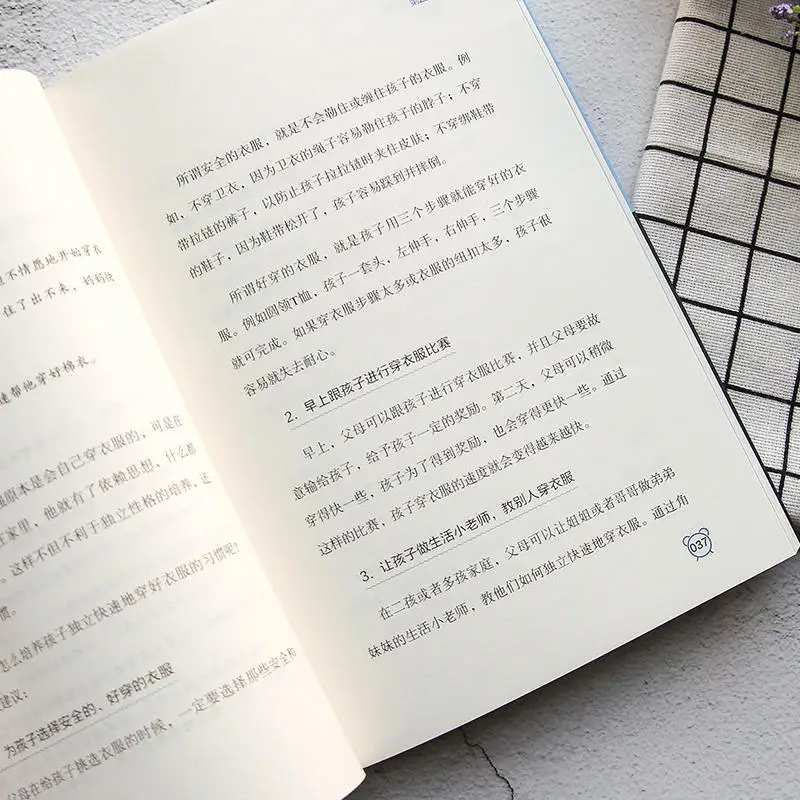 且不情愿地开始穿衣
住了出不来，妈妈快
速帮他穿好棉衣。
原本是会自己穿衣服的，可是在
家里，他就有了依赖思想，什么都
。这样不但不利于独立性格的培养，还
惯。
怎么培养孩子独立快速地穿好衣服的习惯呢？
建议：
为孩子选择安全的、好穿的衣服
父母在给孩子挑选衣服的时候，一定要选择那些安全和
所谓安全的衣服，就是不会勒住或缠住孩子的衣服。例
如，不穿卫衣，因为卫衣的绳子容易勒住孩子的脖子；不穿
带拉链的裤子，以防止孩子拉拉链时夹住皮肤；不穿绑鞋带
的鞋子，因为鞋带松开了，孩子容易踩到并摔倒。
所谓好穿的衣服，就是孩子用三个步骤就能穿好的衣
服。例如圆领T恤，孩子一套头，左伸手，右伸手，三个步骤
就可完成。如果穿衣服步骤太多或衣服的纽扣太多，孩子很
容易就失去耐心。
2. 早上跟孩子进行穿衣服比赛
早上，父母可以跟孩子进行穿衣服比赛，并且父母要故
意输给孩子，给予孩子一定的奖励。第二天，父母可以稍微
穿得快一些，孩子为了得到奖励，也会穿得更快一些。通过
这样的比赛，孩子穿衣服的速度就会变得越来越快。
3. 让孩子做生活小老师，教别人穿衣服
在二孩或者多孩家庭，父母可以让姐姐或者哥哥做弟弟
妹妹的生活小老师，教他们如何独立快速地穿衣服。通过角
037